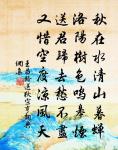 秋在水清山暮蝉
洛阳树色鸣皋烟
送君归去愁不尽
又惜空度凉风天